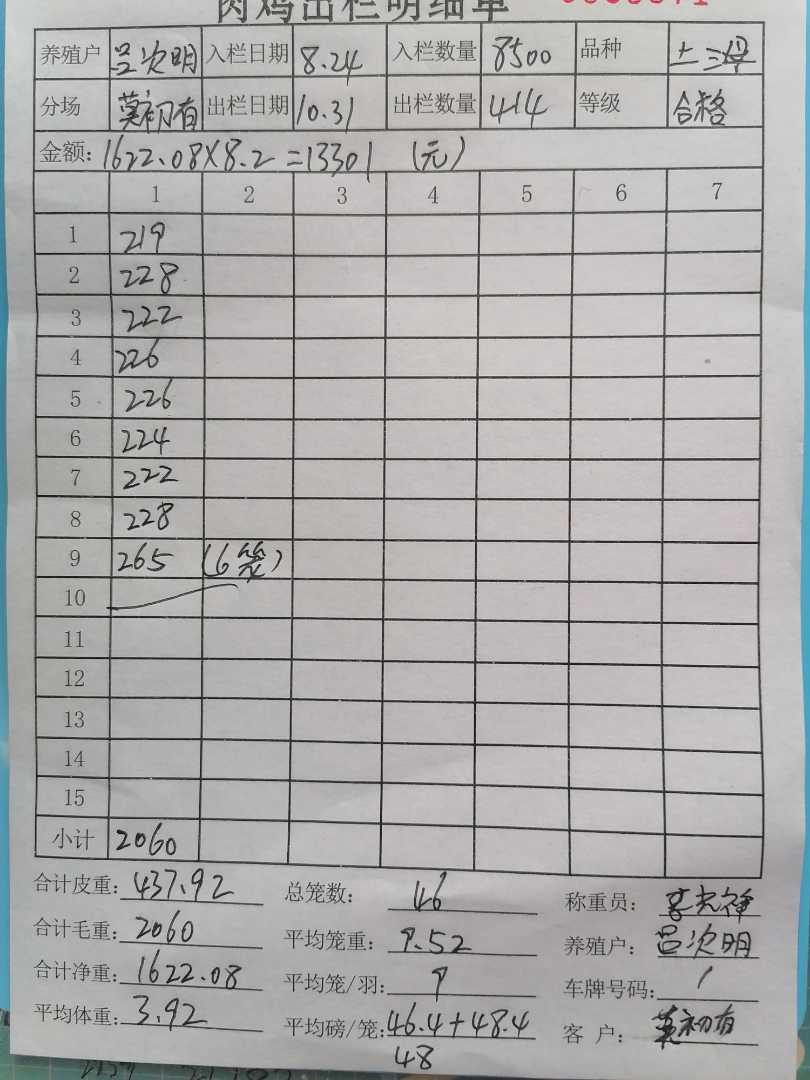 肉鸡出栏明细单
养殖户 吕次明 入栏日期 8.24 入栏数量 8500 品种 土三
分场 莫初有 出栏日期 10.31 出栏数量 414 等级 合格
金额：1622.08×8.2=13301 (元)
1 2 3 4 5 6 7
1 219
2 228
3 222
4 226
5 226
6 224
7 222
8 228
9 265 (6笼)
10
11
12
13
14
15
小计 2060
合计皮重：437.92 总笼数： 46 称重员：
合计毛重：2060 平均笼重：9.52 养殖户：吕次明
合计净重：1622.08 平均笼/羽： 9 车牌号码： /
平均体重：3.92 平均磅/笼：46.4+48.4 客 户：莫初有
48